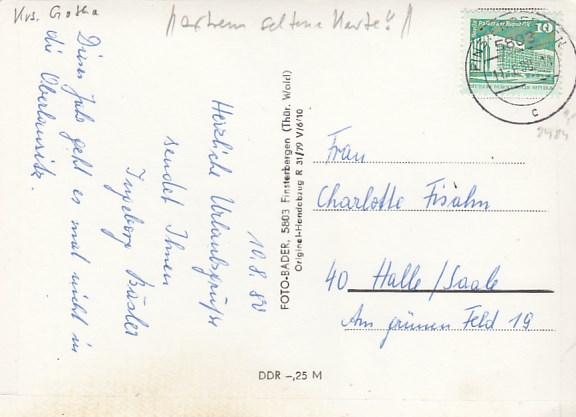 Krs. Gotha
extrem seltene Karte!!
10.8.80
Herzliche Urlaubsgrüße
sendet Ihnen
Ingeborg Bäsler
Dieses Jahr geht es mal nicht in
die Oberlausitz.
FOTO-BADER, 5803 Finsterbergen (Thür. Wald)
Original-Handabzug R 31/79 V/6/10
DDR –,25 M
10
5803
c
2484
Frau
Charlotte Fisahn
40 Halle/Saale
Am grünen Feld 19